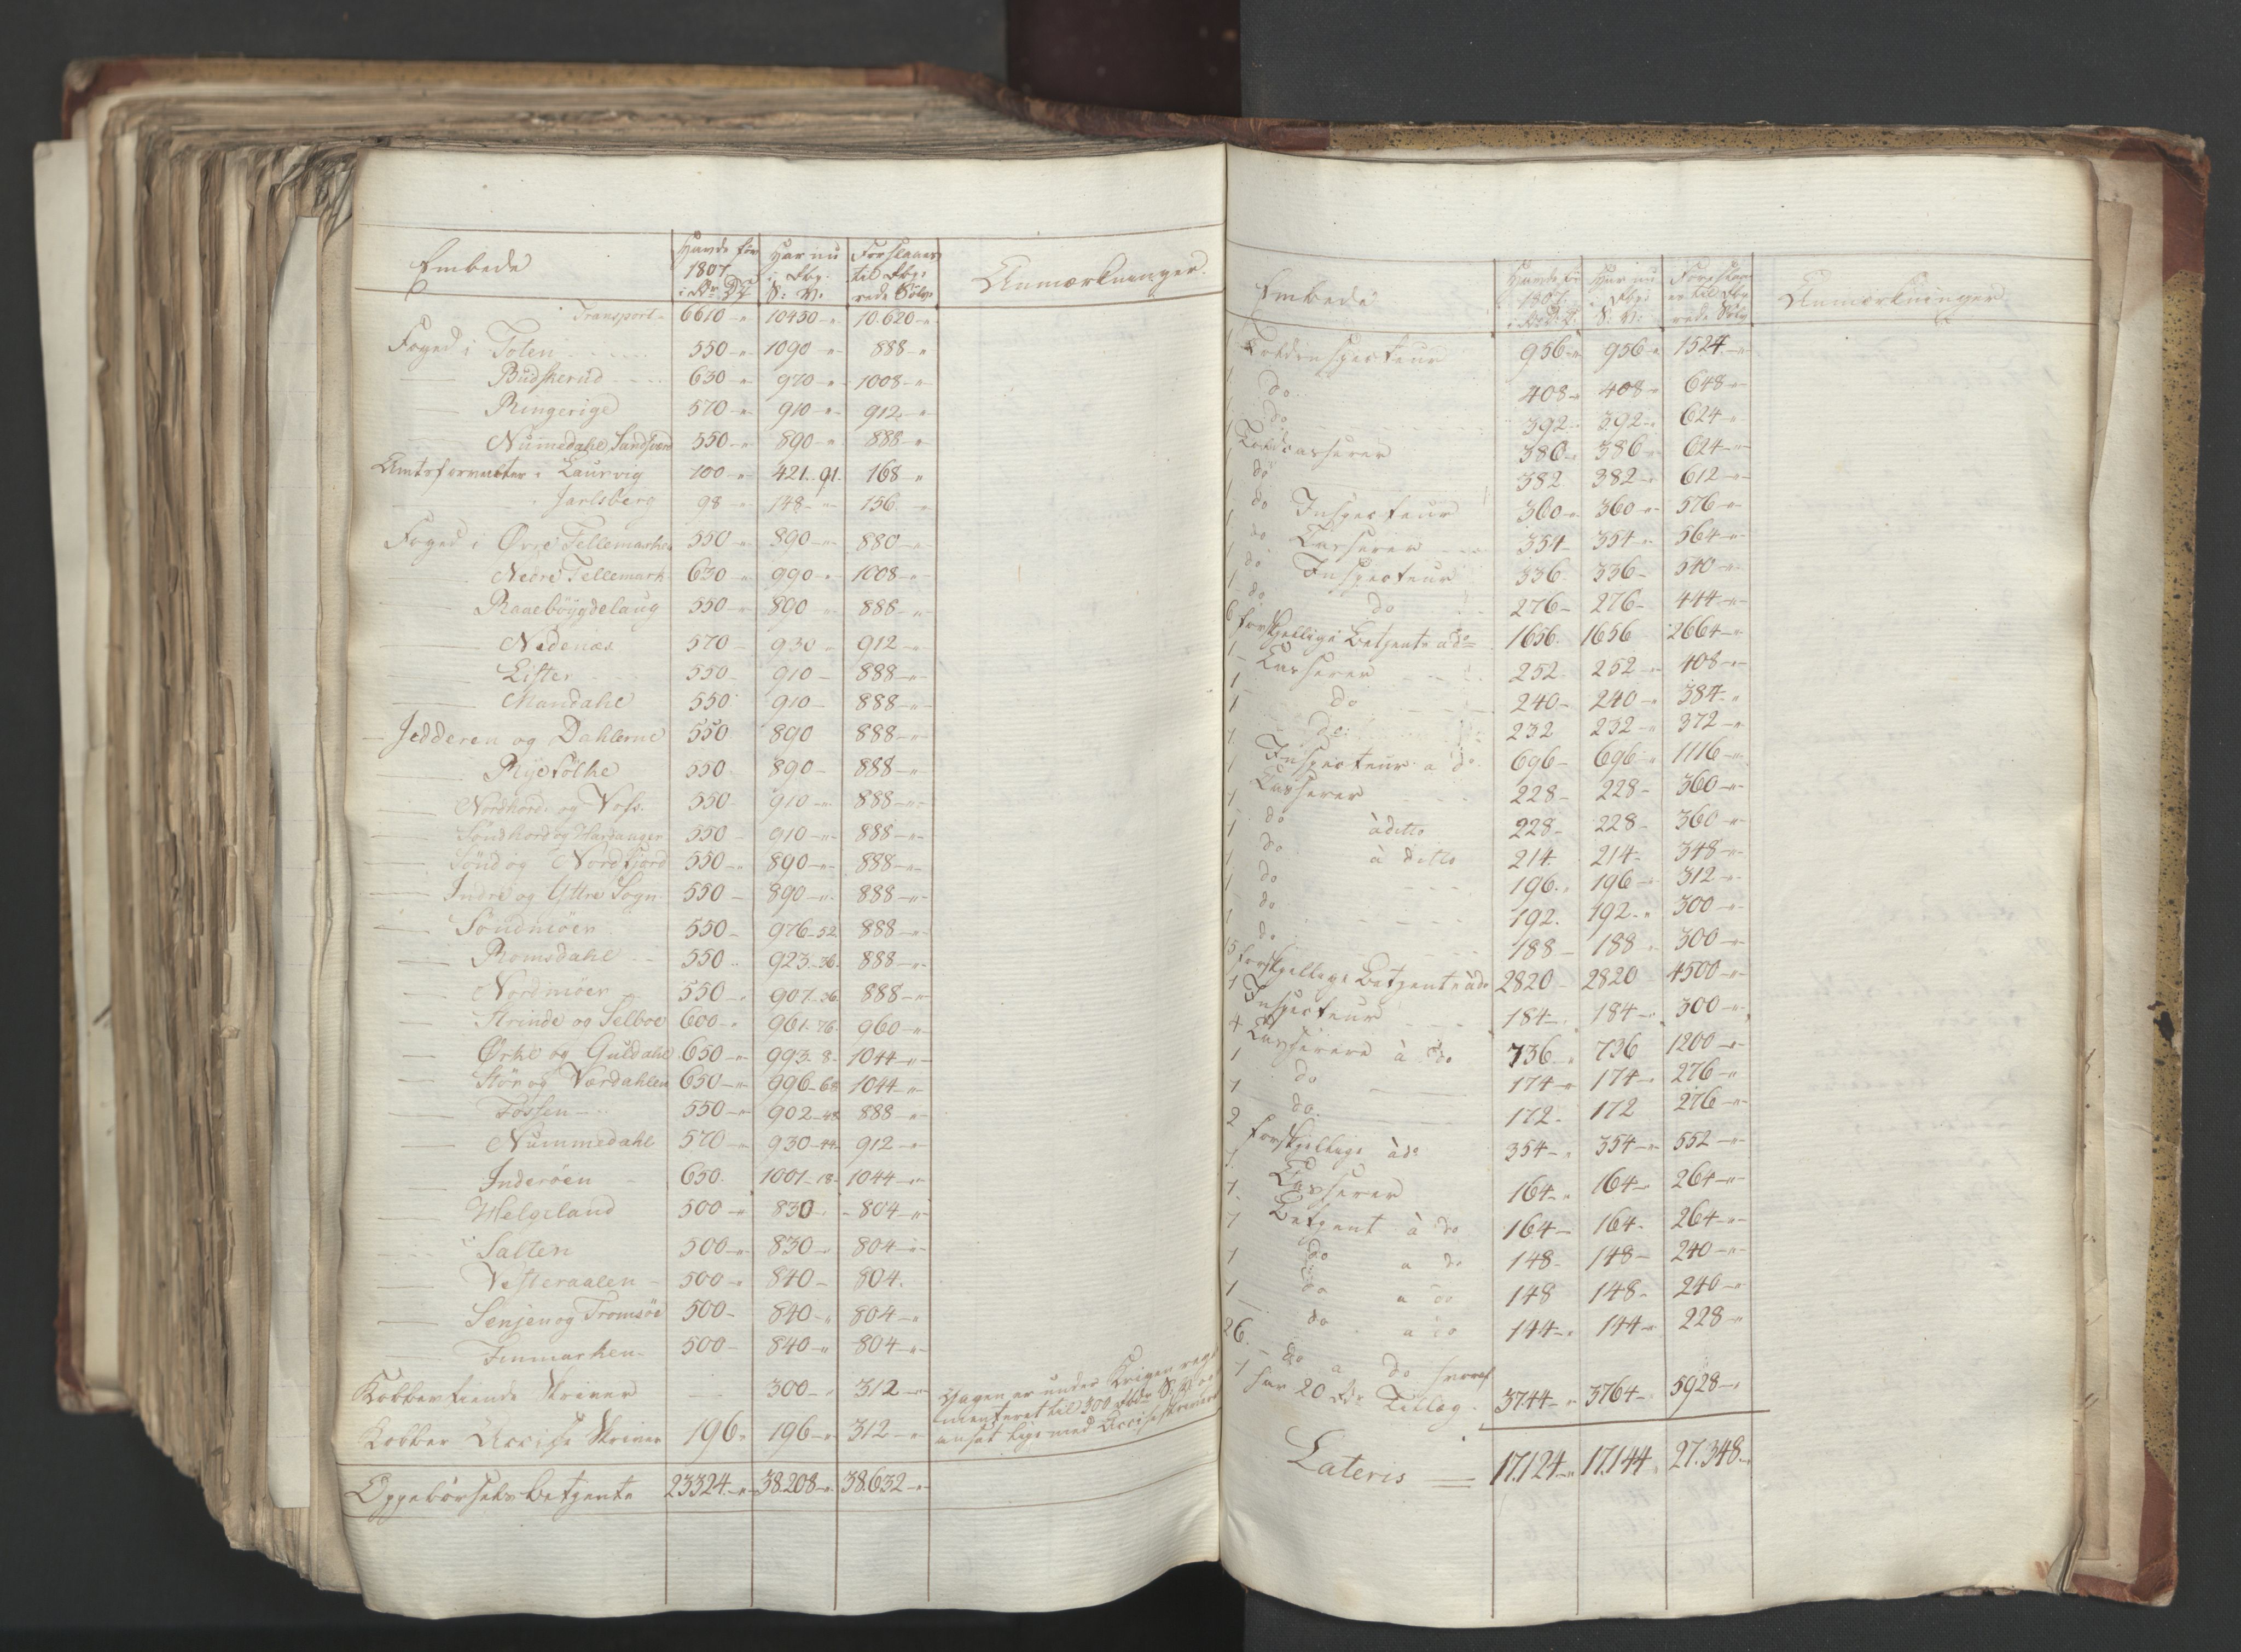 Embede | Havde før 1807 i Rr DC | Har nu i Rbp. S: V: | Forslaaes til Rbp: rede Sølv: | Anmærkninger.
Transport - 6610 -"- 10450 -"- 10.620 -"-
Foged i Toten 550 -"- 1090 -"- 888 -"
Budskerud 630 -"- 970 -"- 1008 -"-
Ringerige 570 -"- 910 -"- 912 -"
Nummedahl, Sandsværd 550 -"- 890 -"- 888 -"
Amtsforvalter i Laurvig 100 -"- 421..91. 168 "
Jarlsberg 98 -"- 148 -"- 156 -"
Foged i Øvre Tellemarken 550 -"- 890 -"- 880 -"-
Nedre Tellemark 630 -"- 990 -"- 1008 -"-
Raaebøygdelaug 550 -"- 890 -"- 888 -"-
Nedenæs 570 - 930 - 912 -"-
Lister 550 - 910 - 888 -"-
Mandahl 550 910 - 888 -"-
— Jedderen og Dahlerne 550 890 888 -"-
Ryefölke 550. 890 - 888 -"-
Nordhord. og Vofs. 550 - 910 -"- 888 -"-
Söndhord og Hardanger 550 - 910 -"- 888 -"-
Sönd og Nordfjord 550 - 890 -"- 888 -"-
Indre og Yttre Sogn 550 - 890 -"- 888 -"-
Söndmöer 550 - 976 - 52 888 -"-
Romsdahl 550 .. 923 - 36. 888 -"-
Nordmöer 550 - 907 - 36 888 -"-
Strinde og Selboe 600 - 961 - 76. 960 -"-
Ørke og Guldahl 650 -"- 993. 8 - 1044 -"-
Stör og Værdahlen 650 -"- 996 - 68 1044 -"-
Fossen 550 -"- 902 - 48 888 -"-
Nummedahl 570 -"- 930 - 44. 912 -"-
Inderöen 650. 1001 - 18 - 1044 -"-
Helgeland 500 -"- 830 - 804 -"-
Salten 500 -"- 830 -" 804 -"-
Vesteraalen 500 -"- 840 - 804.
Senjen og Tromsöe 500 - 840 -" 804 -"
Finmarken 500 - 840 -" 804 -"-
Kobbertiende Skriver 300 - 312 -" Gagen er under Krigen reg-
menteret til 300 Rbdr S: V: og
Kobber Accise Skriver 196 " 196 -" 312 -" ansat lige med Acciseskriveren
Oppebörselsbetjente 23324 -"- 38.208 -"- 38.632 -"-
Embede | Havde før 1807 i Rr DC. | Har nu i Rbp: S: V: | Foreslaaes til Rbp. rede Sölv | Anmærkninger
1 Toldinspecteur 956 -"- 956 -"- 1524 -"-
1 do 408 -" 408 -" 648 -"-
1 do 392 - 392 -" 624 -"
1 Toldcasserer 386 - 386 -" 624 -"-
1 do 382. 382 -" 612 -"-
1 do Inspecteur 360 -" 360 -"- 576 -"-
1 do Casserer 354 - 354 -" 564 -"-
1 do Inspecteur 336. 336 - 540 -"-
1 do do 276 - 276 - 444 -"-
6 forskjellige Betjente à do 1656. 1656 2664 -"-
1 - Casserer 252. 252 -" 408 -"-
1 do 240 - 240 -" 384 -"
1 do: 232 232 -" 372 -"-
1 Inspecteur a do 696 - 696 -" 1116 -"-
1 Casserer 228 - 228 - 360 -"-
1 do à ditto 228 - 228 - 360 -"-
1 do à ditto 214. 214 - 348 -"-
1 do 196 .. 196 -"- 312 -"-
1 do 192. 192 -" 300 -"-
1 do 188 - 188 - 300 -"-
15 forskjellige Betjente à do 2820 - 2820 4500 -"-
1 Inspecteur 184 - 184 -" 300 -"-
4 Casserere à do 736 -" 736 1200 -"-
1 do 174 -" 174 -" 276 -"-
1 do. 172. 172 276 -"-
2 forskjellige à do 354 - 354 -" 552 -"-
1 Casserer 164 -" 164 -" 264 -"-
1 Betjent à do 164 - 164 - 264 -"-
1 do a do 148 - 148 - 240 -"-
1 do a do 148 148 - 240 -"
1 do a do 144 -" 144 -" 228 -"
26. - do a do hvoraf
1 har 20 Rdr Tillæg. 3744 -"- 3764 - 5928 -"
Lateris = 17.124 -"- 17.144 " 27.348 -"